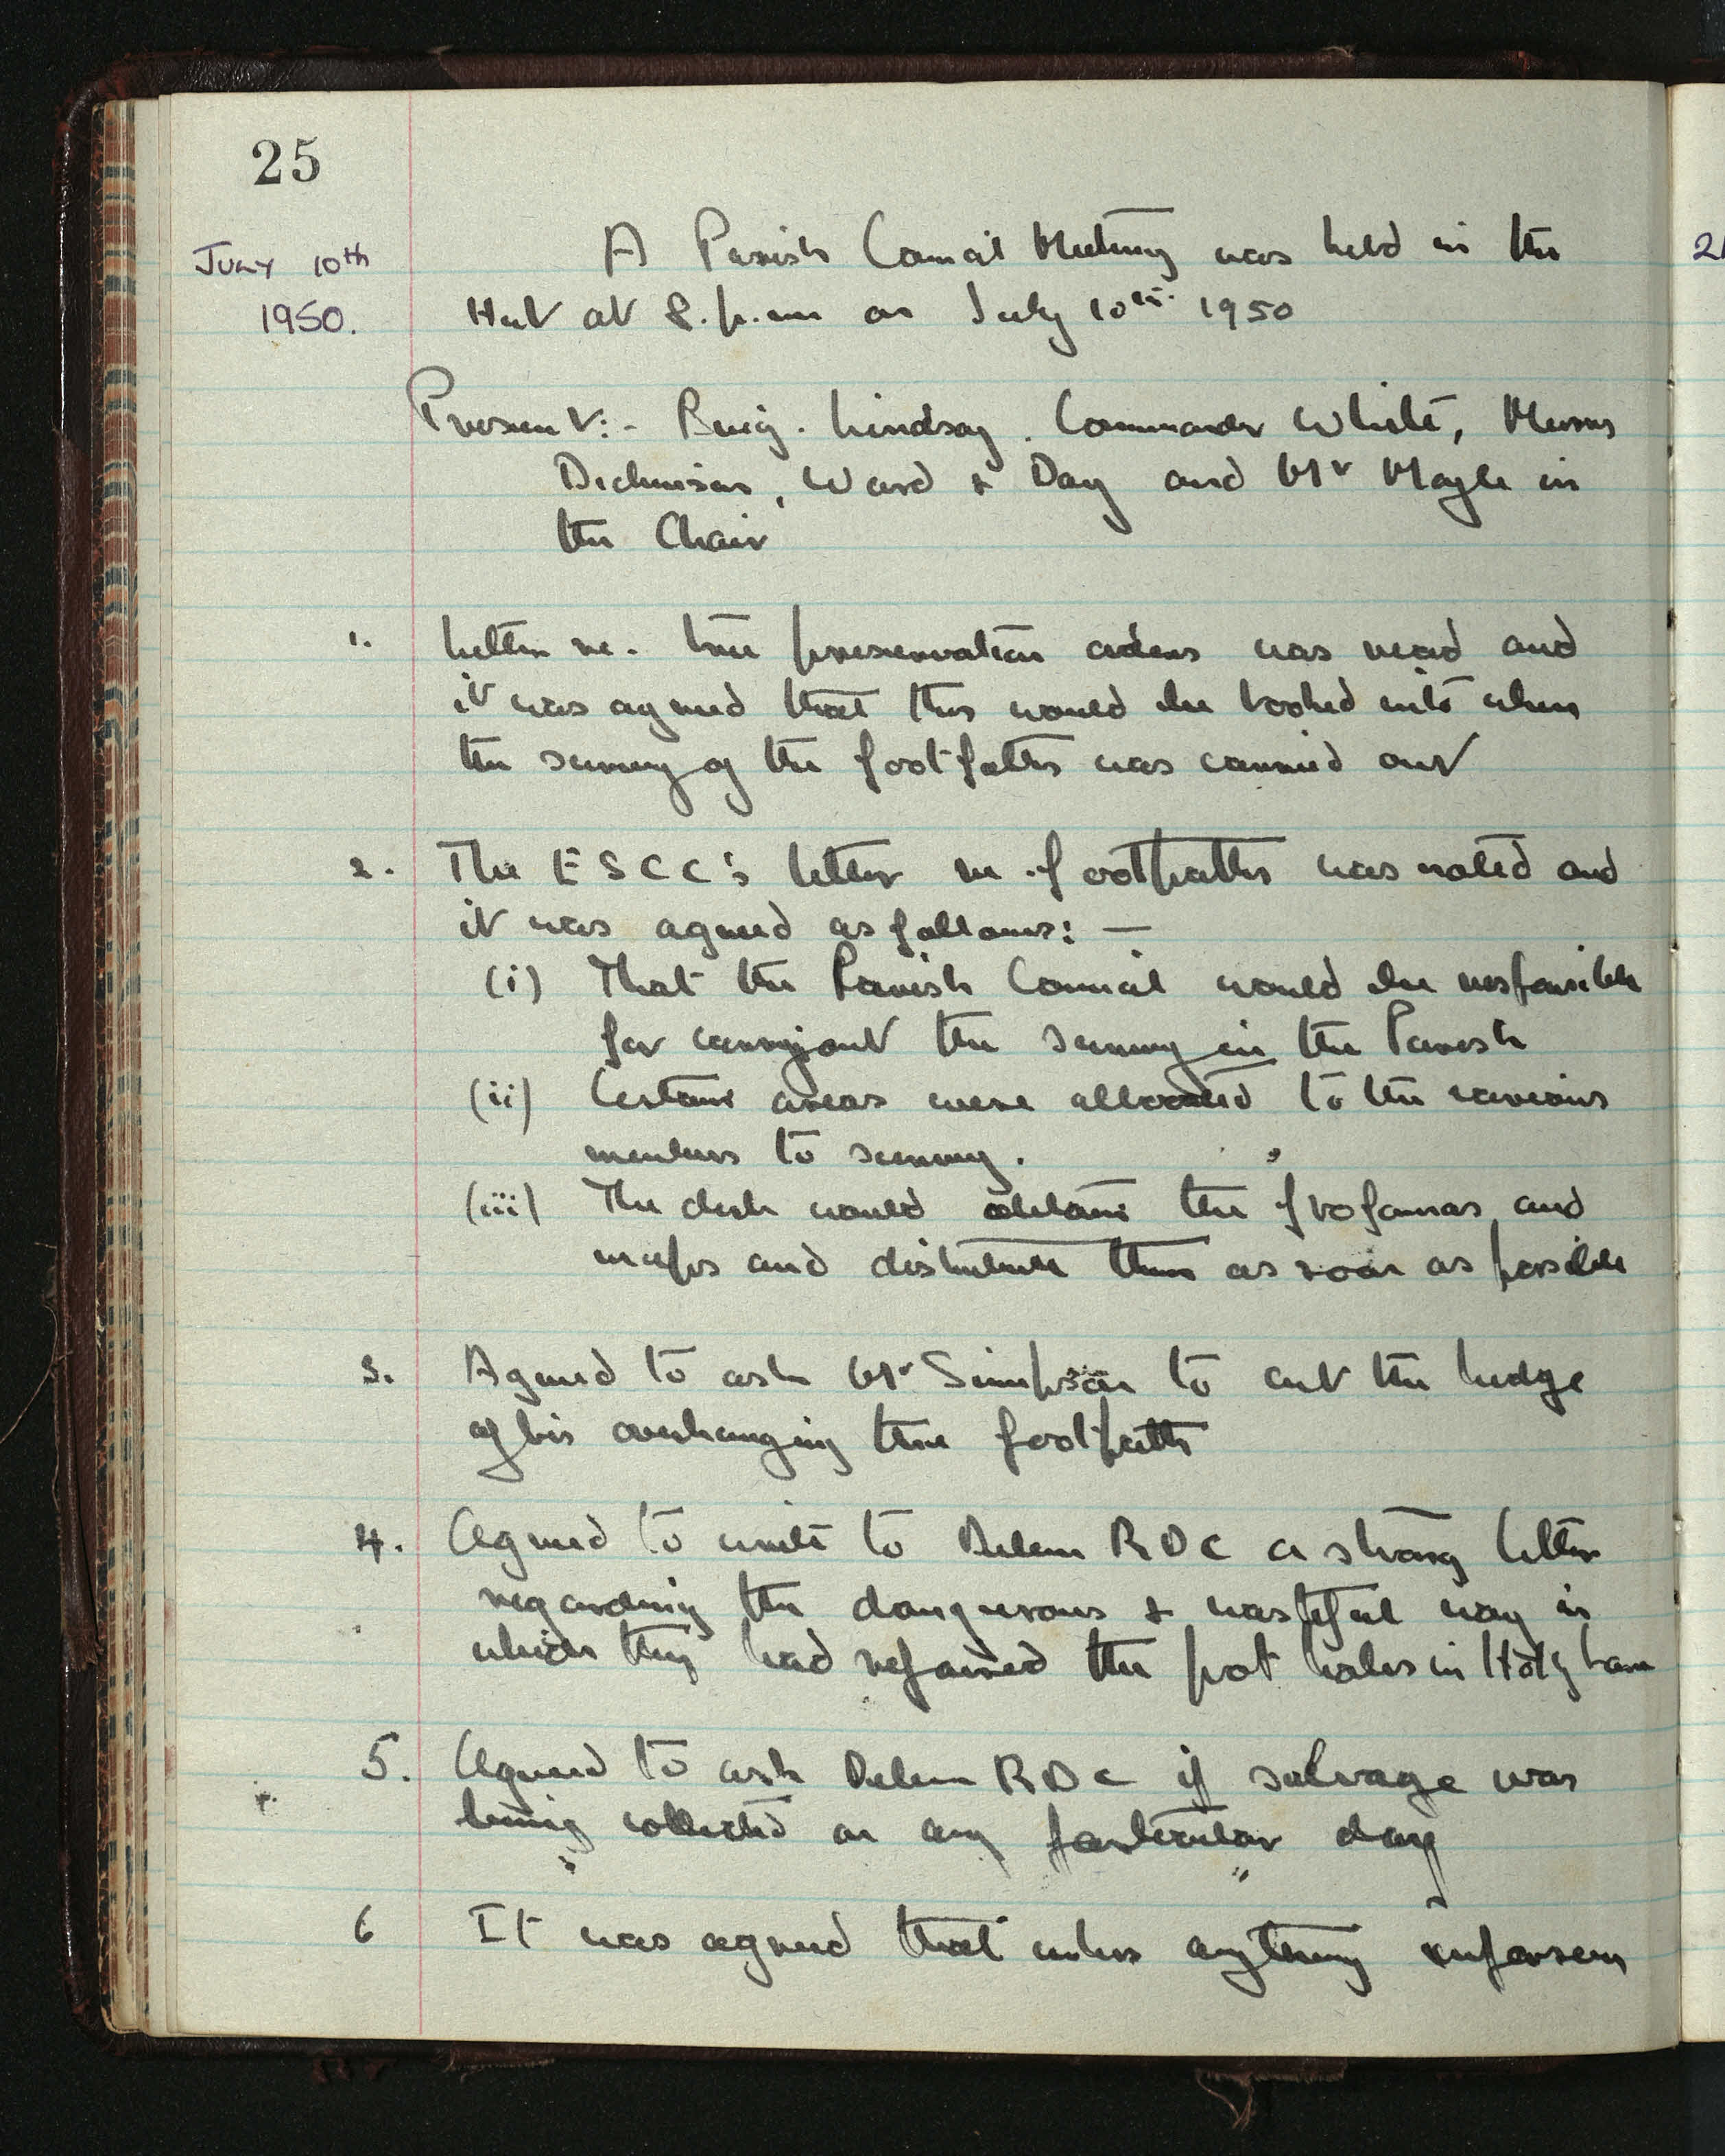 25
July 10th
1950.
A Parish Council Meeting was held in the
Hut at 8.p.m on July 10th. 1950
Present:- Brig. Lindsay. Commander White, Messrs
Dickinson, Ward & Day and Mr Mayle in
the Chair
1. Letter re. tree preservation orders was read and
it was agreed that this would be looked into when
the survey of the footpaths was carried out
2. The ESCC's letter re. footpaths was noted and
it was agreed as follows:—
(i) That the Parish Council would be responsible
for carrying out the survey in the Parish
(ii) Certain areas were allocated to the various
members to survey.
(iii) The clerk would obtain the proformas and
maps and distribute them as soon as possible
3. Agreed to ask Mr Simpson to cut the hedge
of his overhanging the footpath
4. Agreed to write to RDC a strong letter
regarding the dangerous & wasteful way in
which they had repaired the pot holes in Lane
5. Agreed to ask RDC if salvage was
being collected on any particular day
6 It was agreed that unless anything